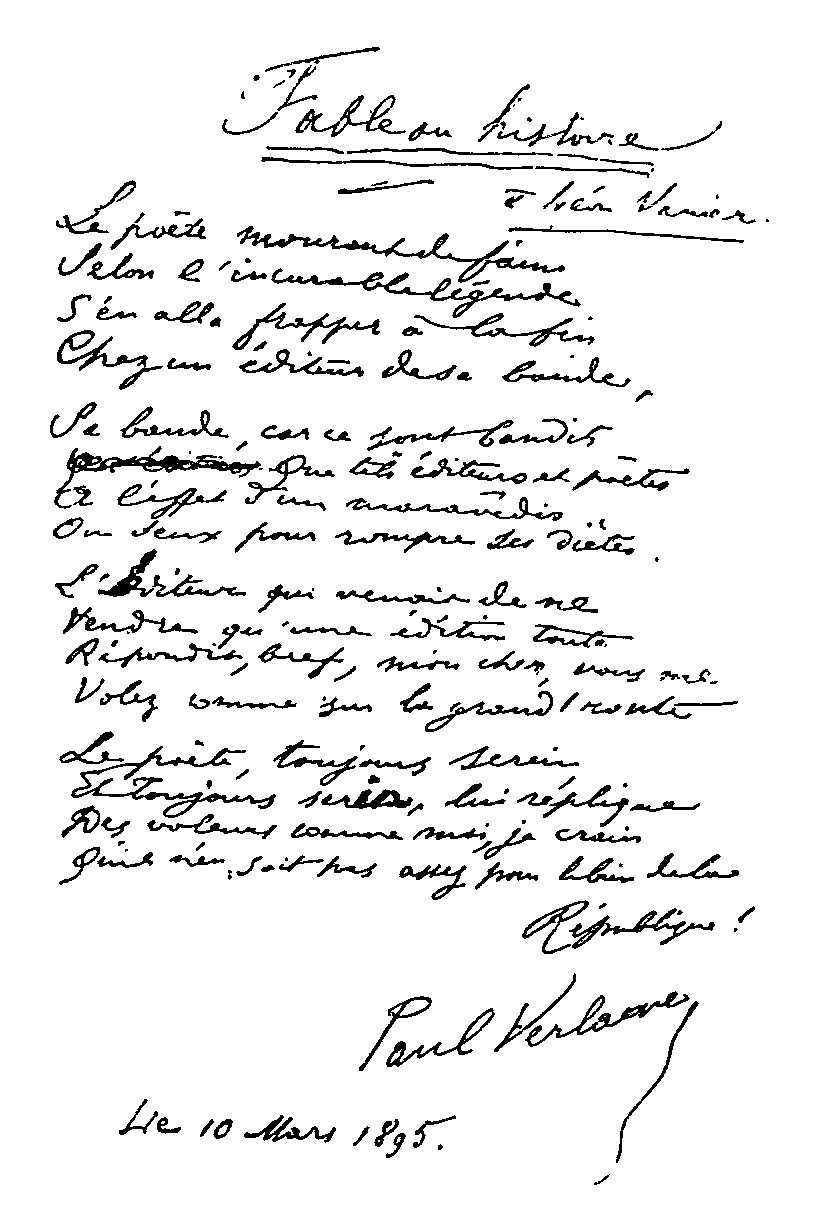 Fable ou histoire
à Léon Vanier.
Le poète mourant de faim
Selon l'incurable légende
S'en alla frapper à la fin
Chez un éditeur de sa bande,
Sa bande, car ce sont bandits
Que tels éditeurs et poètes
A l'effet d'un maravédis
Ou deux pour rompre ses diètes.
L'Éditeur qui venait de ne
Vendre qu'une édition toute
Répondit, bref, mon cher, vous me
Volez comme sur la grand'route
Le poète, toujours serein
Et toujours serin, lui réplique
Des voleurs comme moi, je crain
Qu'il n'en soit pas assez pour le bien de la
République!
Paul Verlaine
Le 10 Mars 1895.